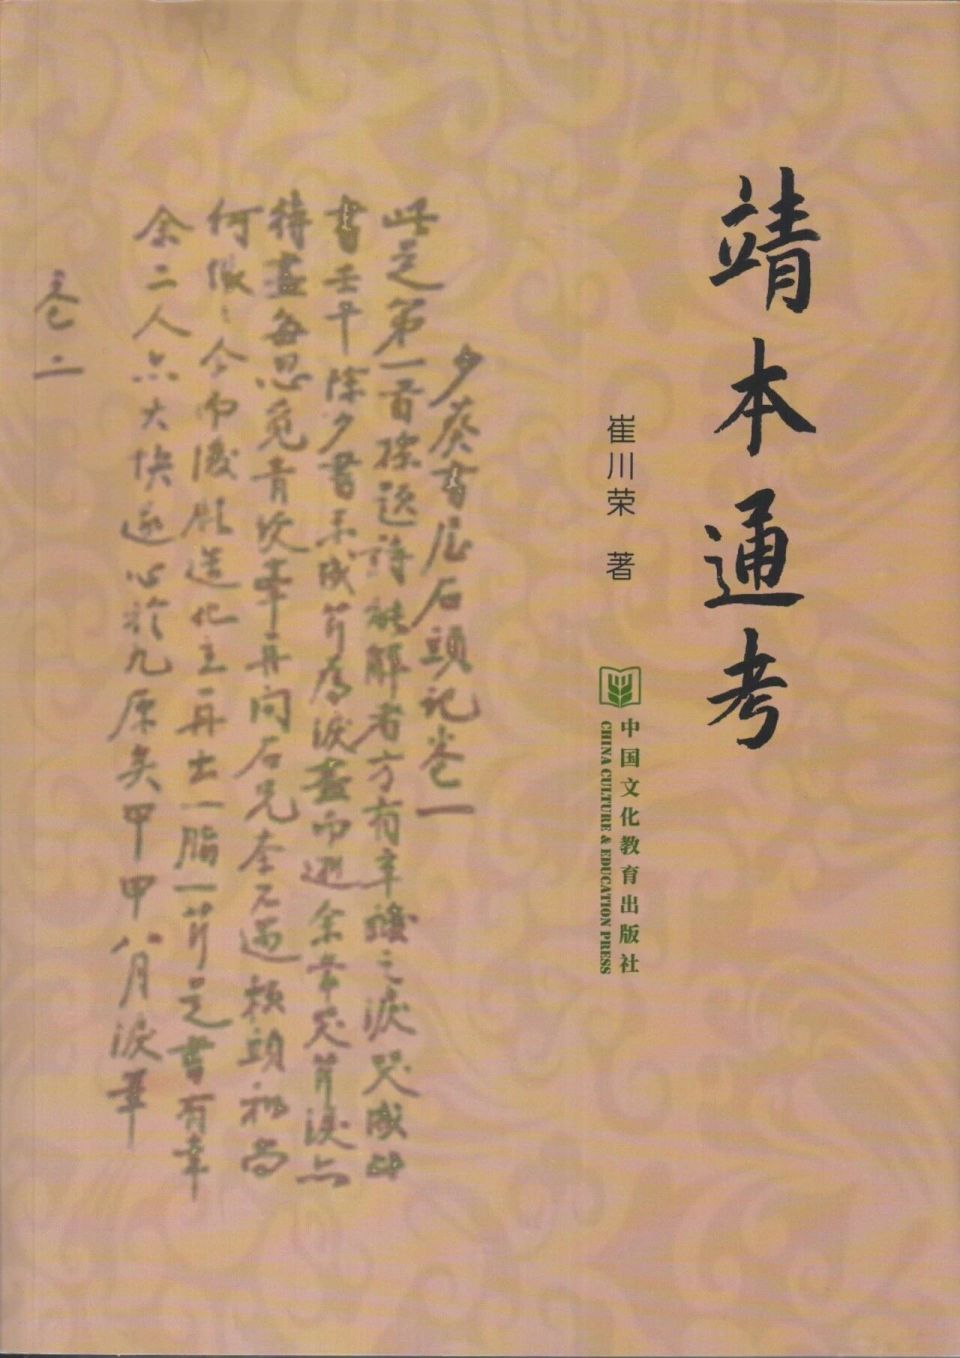 靖本通考
崔川荣 著
中国文化教育出版社
CHINA CULTURE & EDUCATION PRESS
夕葵書屋石頭記卷一
此是第一首標題詩能解者方有辛酸之淚哭成此
書壬午除夕書未成芹為淚盡而逝余常哭芹淚亦
待盡每思覓青埂峯再問石兄奈不遇賴頭和尚
何悵〻今而後願造化主再出一脂一芹是書有幸
余二人亦大快遂心於九原矣甲申八月淚筆
卷二